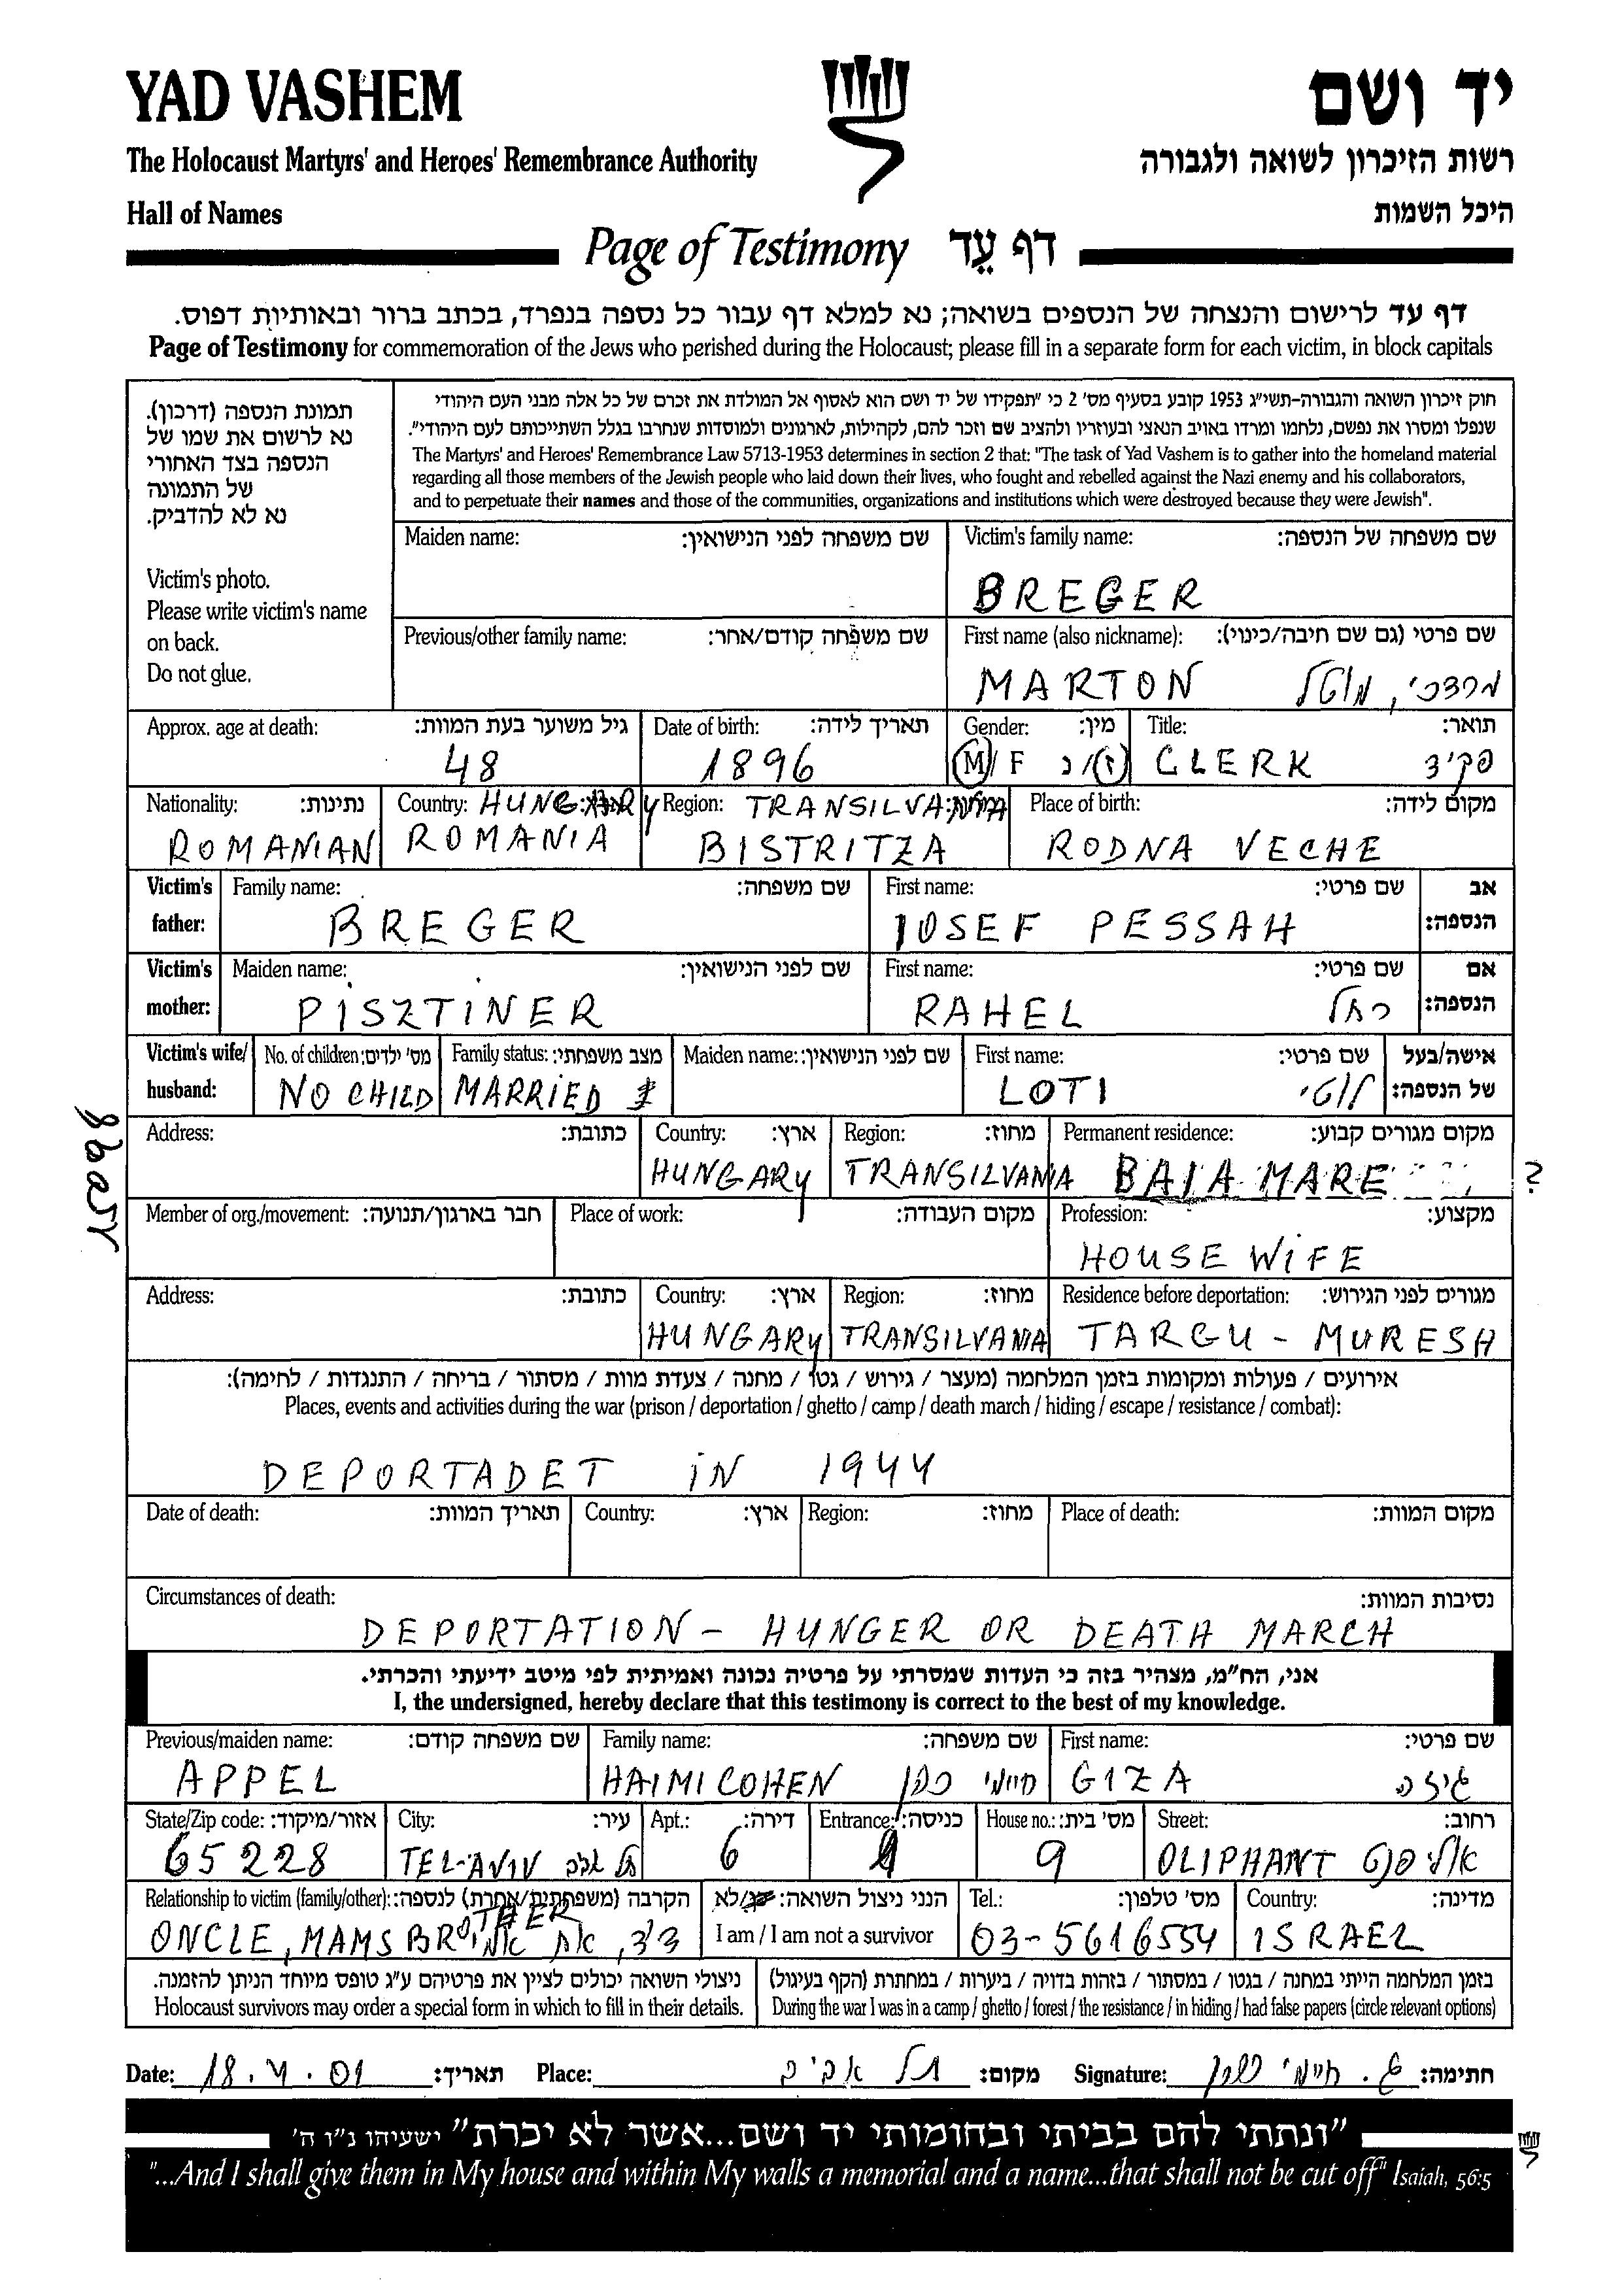 YAD VASHEM
יד ושם
The Holocaust Martyrs' and Heroes' Remembrance Authority
רשות הזיכרון לשואה ולגבורה
Hall of Names
היכל השמות
Page of Testimony דף עֵד
דף עד לרישום והנצחה של הנספים בשואה; נא למלא דף עבור כל נספה בנפרד, בכתב ברור ובאותיות דפוס.
Page of Testimony for commemoration of the Jews who perished during the Holocaust; please fill in a separate form for each victim, in block capitals
תמונת הנספה (דרכון).
נא לרשום את שמו של
הנספה בצד האחורי
של התמונה
נא לא להדביק.
Victim's photo.
Please write victim's name
on back.
Do not glue.
חוק זיכרון השואה והגבורה-תשי"ג 1953 קובע בסעיף מס' 2 כי "תפקידו של יד ושם הוא לאסוף אל המולדת את זכרם של כל אלה מבני העם היהודי
שנפלו ומסרו את נפשם, נלחמו ומרדו באויב הנאצי ובעוזריו ולהציב שם וזכר להם, לקהילות, לארגונים ולמוסדות שנחרבו בגלל השתייכותם לעם היהודי".
The Martyrs' and Heroes' Remembrance Law 5713-1953 determines in section 2 that: "The task of Yad Vashem is to gather into the homeland material
regarding all those members of the Jewish people who laid down their lives, who fought and rebelled against the Nazi enemy and his collaborators,
and to perpetuate their names and those of the communities, organizations and institutions which were destroyed because they were Jewish".
Maiden name: שם משפחה לפני הנישואין:
Victim's family name: שם משפחה של הנספה:
BREGER
Previous/other family name: שם משפחה קודם/אחר:
First name (also nickname): שם פרטי (גם שם חיבה/כינוי):
MARTON מרדכי, מוטל
Approx. age at death: גיל משוער בעת המוות:
48
Date of birth: תאריך לידה:
1896
Gender: מין:
M/ F ז/נ
Title: תואר:
CLERK פקיד
Nationality: נתינות:
ROMANIAN
Country: HUNGARY
ROMANIA
Region: TRANSILVANIA
BISTRITZA
Place of birth: מקום לידה:
RODNA VECHE
Victim's father: אב הנספה:
Family name: שם משפחה:
BREGER
First name: שם פרטי:
IOSEF PESSAH
Victim's mother: אם הנספה:
Maiden name: שם לפני הנישואין:
PISZTINER
First name: שם פרטי:
RAHEL רחל
Victim's wife/ husband: אישה/בעל של הנספה:
No. of children: מס' ילדים:
NO CHILD
Family status: מצב משפחתי:
MARRIED
Maiden name: שם לפני הנישואין:
First name: שם פרטי:
LOTI לוטי
Address: כתובת:
Country: ארץ:
HUNGARY
Region: מחוז:
TRANSILVANIA
Permanent residence: מקום מגורים קבוע:
BAIA MARE ?
Member of org./movement: חבר בארגון/תנועה:
Place of work: מקום העבודה:
Profession: מקצוע:
HOUSE WIFE
Address: כתובת:
Country: ארץ:
HUNGARY
Region: מחוז:
TRANSILVANIA
Residence before deportation: מגורים לפני הגירוש:
TARGU - MURESH
אירועים / פעולות ומקומות בזמן המלחמה (מעצר / גירוש / גטו / מחנה / צעדת מוות / מסתור / בריחה / התנגדות / לחימה):
Places, events and activities during the war (prison / deportation / ghetto / camp / death march / hiding / escape / resistance / combat):
DEPORTADET IN 1944
Date of death: תאריך המוות:
Country: ארץ:
Region: מחוז:
Place of death: מקום המוות:
Circumstances of death: נסיבות המוות:
DEPORTATION - HUNGER OR DEATH MARCH
אני, הח"מ, מצהיר בזה כי העדות שמסרתי על פרטיה נכונה ואמיתית לפי מיטב ידיעתי והכרתי.
I, the undersigned, hereby declare that this testimony is correct to the best of my knowledge.
Previous/maiden name: שם משפחה קודם:
APPEL
Family name: שם משפחה:
HAIMI COHEN חיימי כהן
First name: שם פרטי:
GIZA גיזה
State/Zip code: אזור/מיקוד:
65228
City: עיר:
TEL-AVIV תל אביב
Apt.: דירה:
6
Entrance: כניסה:
House no.: מס' בית:
9
Street: רחוב:
OLIPHANT אליפנט
Relationship to victim (family/other): הקרבה (משפחתית/אחרת) לנספה:
ONCLE, MAMS BROTHER דוד, אח אמי
הנני ניצול השואה: לא
I am / I am not a survivor
Tel.: מס' טלפון:
03-5616554
Country: מדינה:
ISRAEL
ניצולי השואה יכולים לציין את פרטיהם ע"ג טופס מיוחד הניתן להזמנה.
Holocaust survivors may order a special form in which to fill in their details.
בזמן המלחמה הייתי במחנה / בגטו / במסתור / בזהות בדויה / ביערות / במחתרת (הקף בעיגול)
During the war I was in a camp / ghetto / forest / the resistance / in hiding / had false papers (circle relevant options)
Date: 18.4.01 תאריך: Place: תל אביב מקום: Signature: ג. חיימי כהן חתימה:
"ונתתי להם בביתי ובחומותי יד ושם...אשר לא יכרת" ישעיהו נ"ו ה'
"...And I shall give them in My house and within My walls a memorial and a name...that shall not be cut off" Isaiah, 56:5